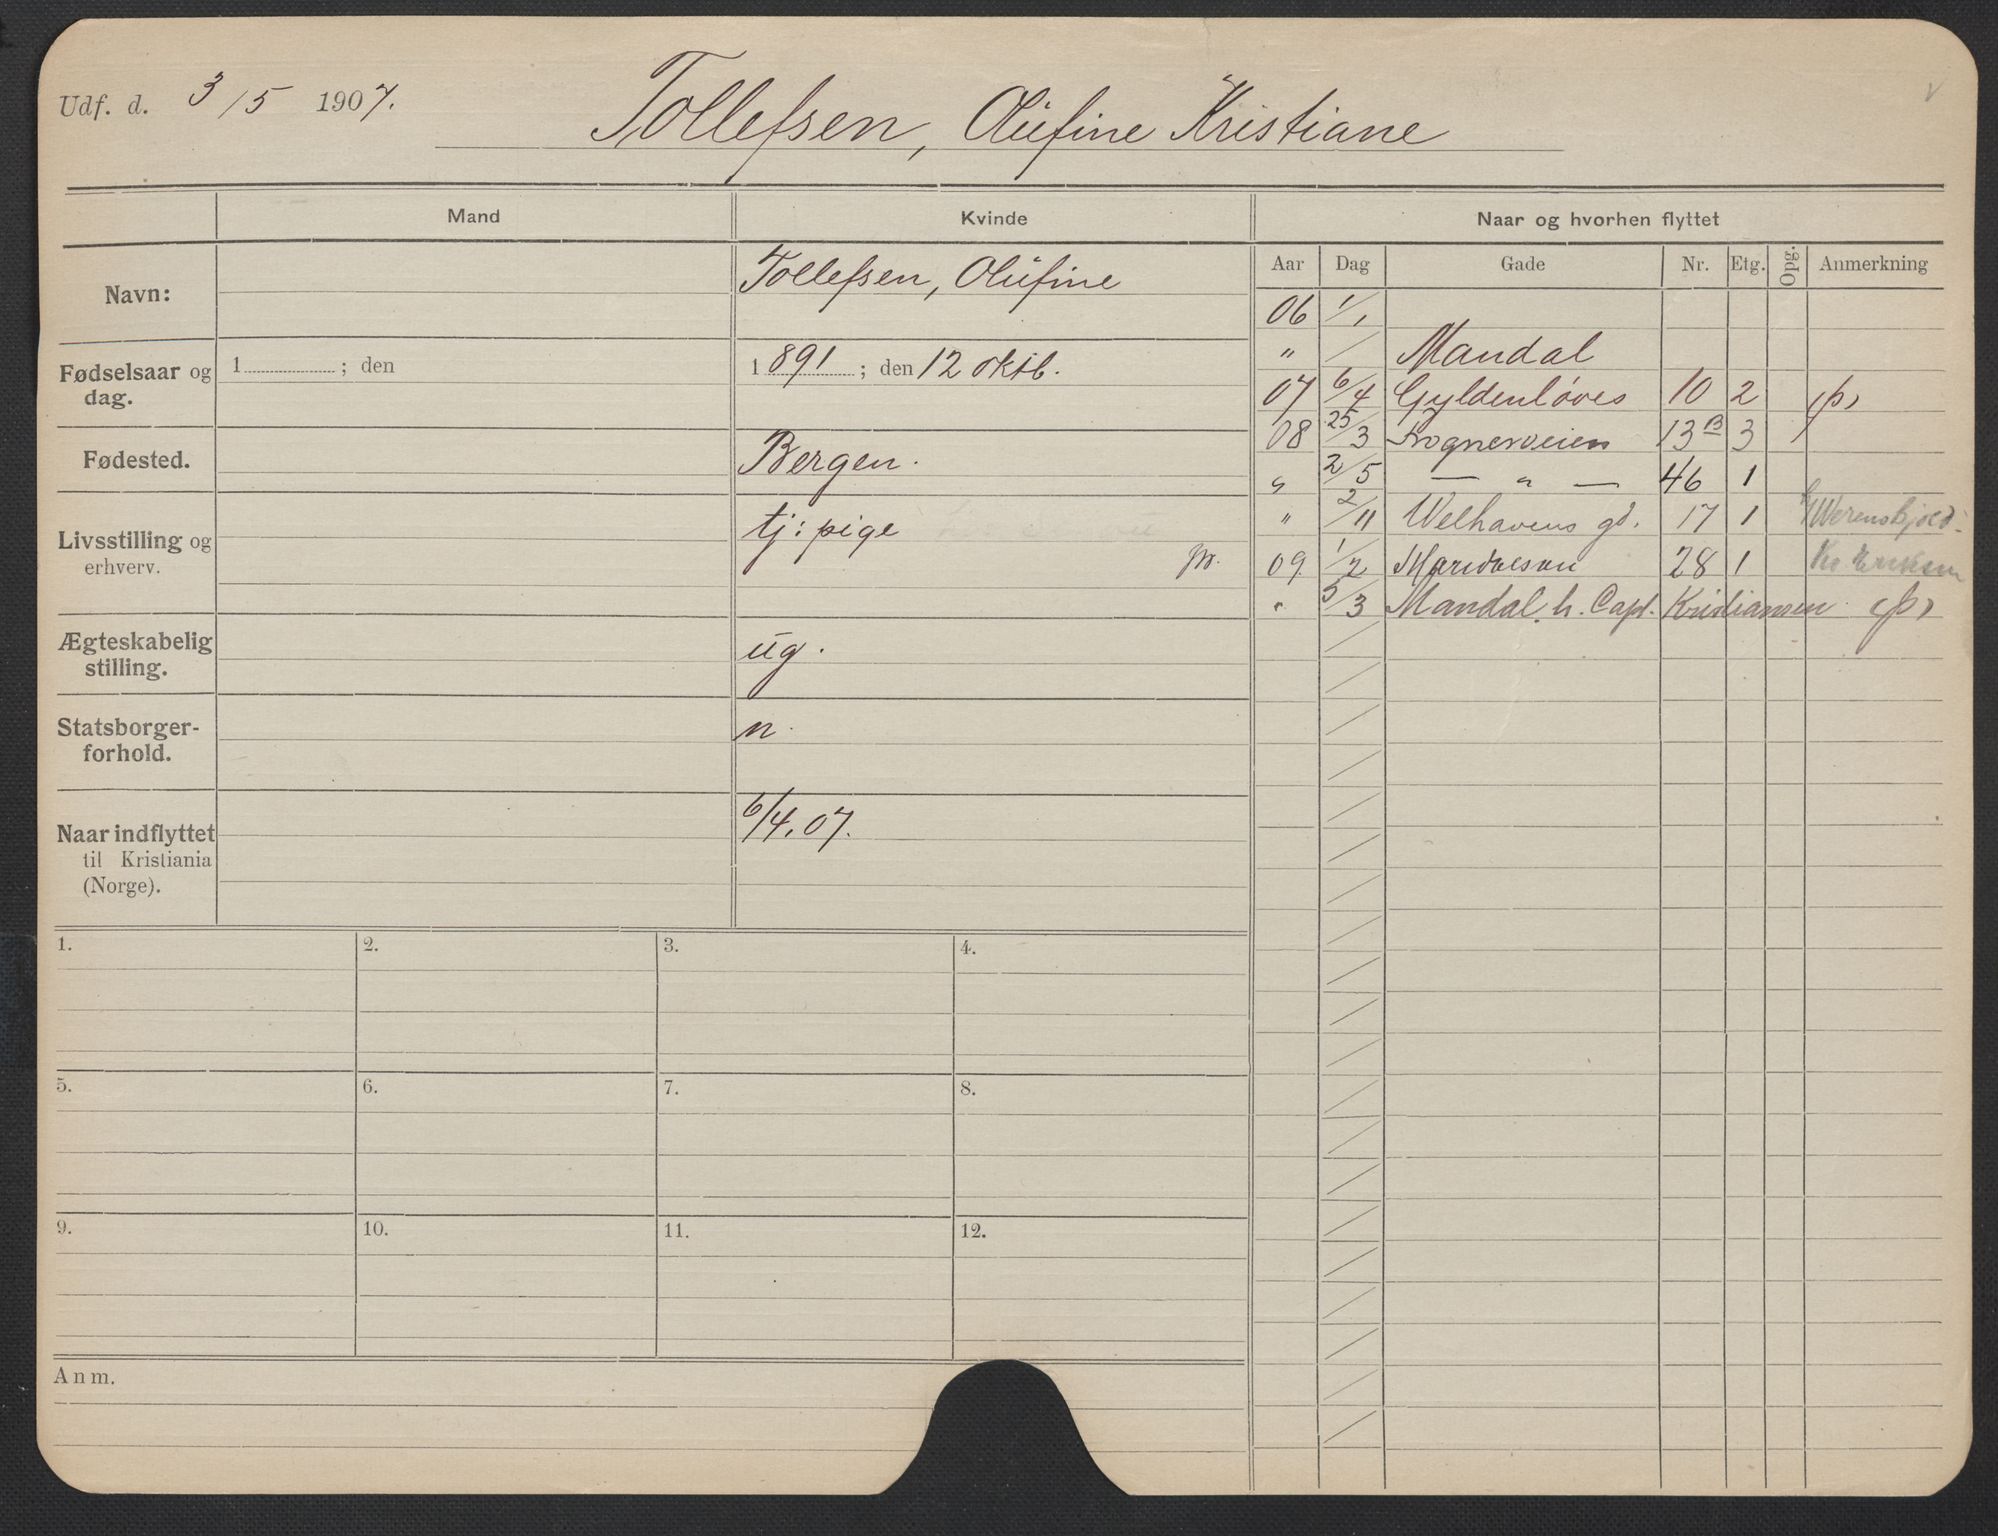 Udf. d. 3/5 1907.
Tollefsen, Olufine Kristiane
Mand
Kvinde
Naar og hvorhen flyttet
Navn:
Tollefsen, Olufine
Fødselsaar og
dag.
1 ; den
1891 ; den 12 oktb.
Fødested.
Bergen.
Livsstilling og
erhverv.
tj: pige
pr.
Ægteskabelig
stilling.
ug.
Statsborger-
forhold.
n.
Naar indflyttet
til Kristiania
(Norge).
6/4.07.
Aar Dag Gade Nr. Etg. Opg. Anmerkning
06 1/1
" / Mandal
07 6/4 Gyldenløves 10 2 (p)
08 25/3 Frognerveien 13B 3
" 2/5 — " — 46 1
" 2/11 Welhavens gd. 17 1 Werenskjold
09 1/2 Maridalsvn 28 1 Eriksen
" 5/3 Mandal. h. Capt. Kristiansen (p)
1. 2. 3. 4.
5. 6. 7. 8.
9. 10. 11. 12.
Anm.